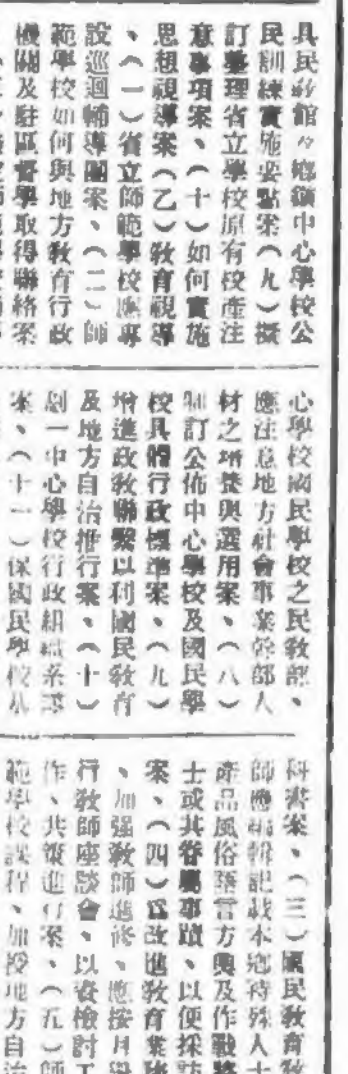 具民敎館及鄉鎭中心學校公
民訓練實施要點案(九)擬
訂整理省立學校原有校產注
意事項案、(十)如何實施
思想視導案(乙)敎育視導
、(一)省立師範學校應專
設巡迴輔導團案、(二)師
範學校如何與地方敎育行政
機關及駐區督學取得聯絡案
心學校國民學校之民敎部、
應注意地方社會事業幹部人
材之培養與選用案、(八)
制訂公佈中心學校及國民學
校具體行政標準案、(九)
增進政敎聯繫以利國民敎育
及地方自治推行案、(十)
劃一中心學校行政組織系
案、(十一)保國民學校
科書案、(三)國民敎育
師應編輯記載本鄉特殊人
產品風俗語言方輿及作戰
士或其眷屬事蹟、以便採訪
案、(四)爲改進敎育業
、加强敎師進修、應按月
行敎師座談會、以資檢討
作、共策進行案、(五)師
範學校課程、加授地方自